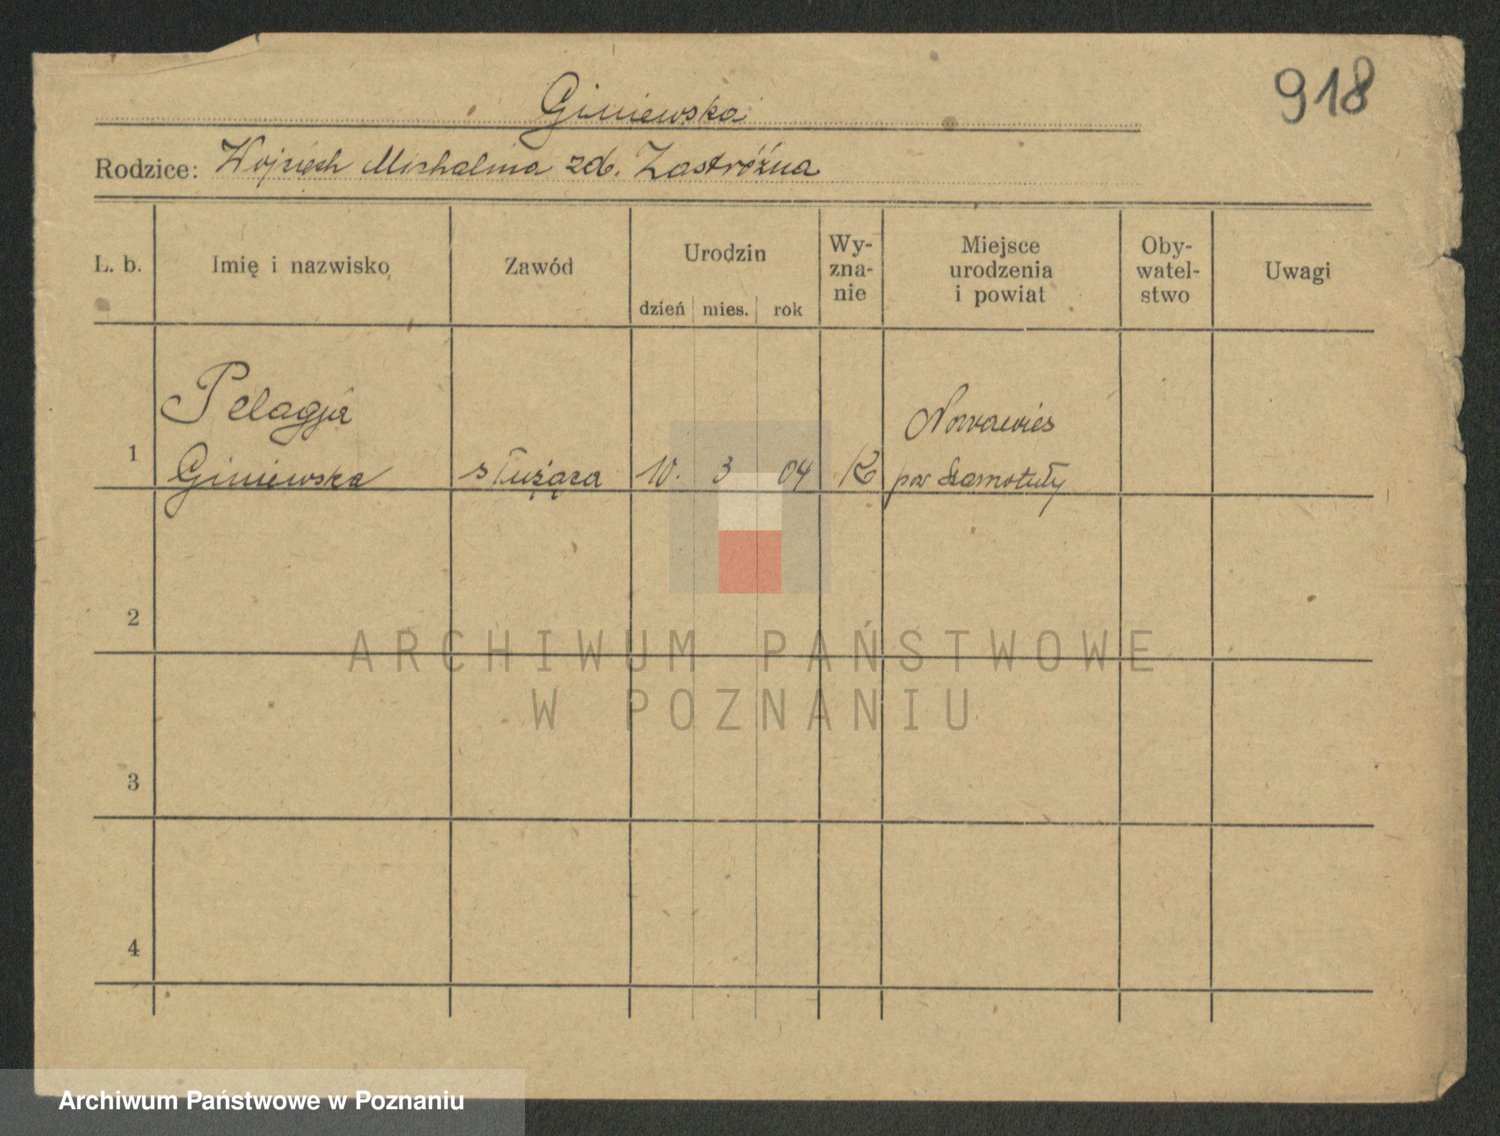 918
Giniewska
Rodzice: Wojciech Michalina zd. Zastróżna
L. b.
Imię i nazwisko
Zawód
Urodzin
dzień mies. rok
Wy-
zna-
nie
Miejsce
urodzenia
i powiat
Oby-
watel-
stwo
Uwagi
Pelagja
Nowawieś
1 Giniewska służąca 10. 3 04 K pow Szamotuły
2
3
4
ARCHIWUM PAŃSTWOWE
W POZNANIU
Archiwum Państwowe w Poznaniu